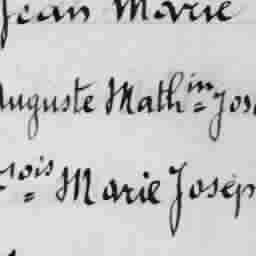 Jean Marie
Auguste Mathin= Jos
rois= Marie Josep